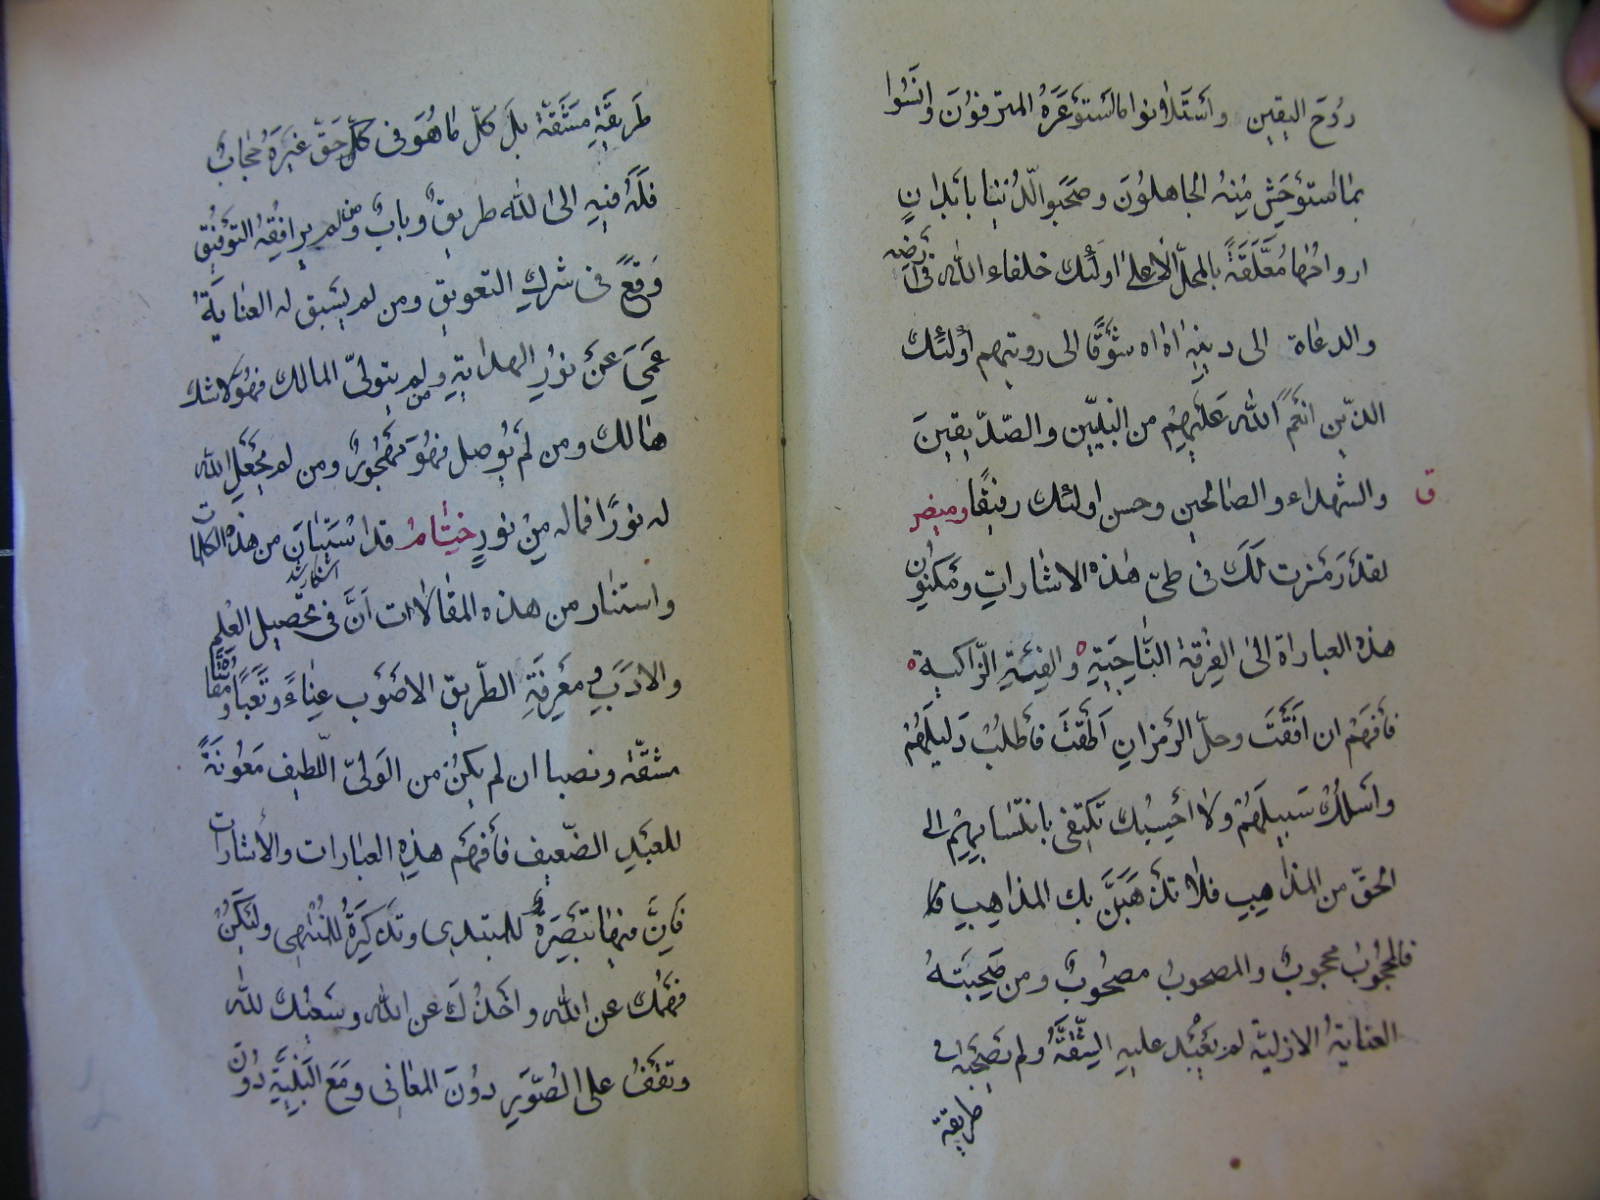 روح اليقين واستلانوا ما استوعره المترفون وانسوا
بما استوحش منه الجاهلون وصحبوا الدنيا بابدان
ارواحها معلقة بالمحل الاعلى اولئك خلفاء الله فى ارضه
والدعاة الى دينه اه اه شوقا الى رويتهم اولئك
الذين انعم الله عليهم من النبيين والصديقين
ق والشهداء والصالحين وحسن اولئك رفيقا وميض
لقد رمزت لك فى طى هذه الاشارات ومكنون
هذه العبارة الى الفرقة الناجية والفئة الزاكية
فافهم ان افقت وحل الرمز ان اطقت فاطلب دليلهم
واسلك سبيلهم ولا احسبك تكتفى بانتسابهم الى
الحق من المذاهب فلا تذهبن بك المذاهب
فالمحجوب محجوب والمصحوب مصحوب ومن صحبته
العناية الازلية لم يبعد عليه الشقة ولم تصحبه فى
طريقة
طريقه مشقة بل كل ما هو فى كل حق غيره حجاب
فله فيه الى الله طريق وباب ومن لم يرافقه التوفيق
وقع فى شرك التعويق ومن لم يسبق له العناية
عمى عن نور الهداية ومن لم يتولى المالك فهو لا شك
هالك ومن لم يوصل فهو مهجور ومن لم يجعل الله
له نورا فما له من نور ختام قد استبان من هذه الكلمات
واستنار من هذه المقالات ان فى تحصيل العلم
والادب ومعرفة الطريق الاصوب عناء وتعبا
مشقة ونصبا ان لم يكن من الولى اللطيف معونة
للعبد الضعيف فافهم هذه العبارات والاشارات
فان فيها تبصرة للمبتدى وتذكرة للمنتهى وليكن
فهمك عن الله واخذك عن الله وسعيك لله
وتقف على الصور دون المعانى ومع البنية دون